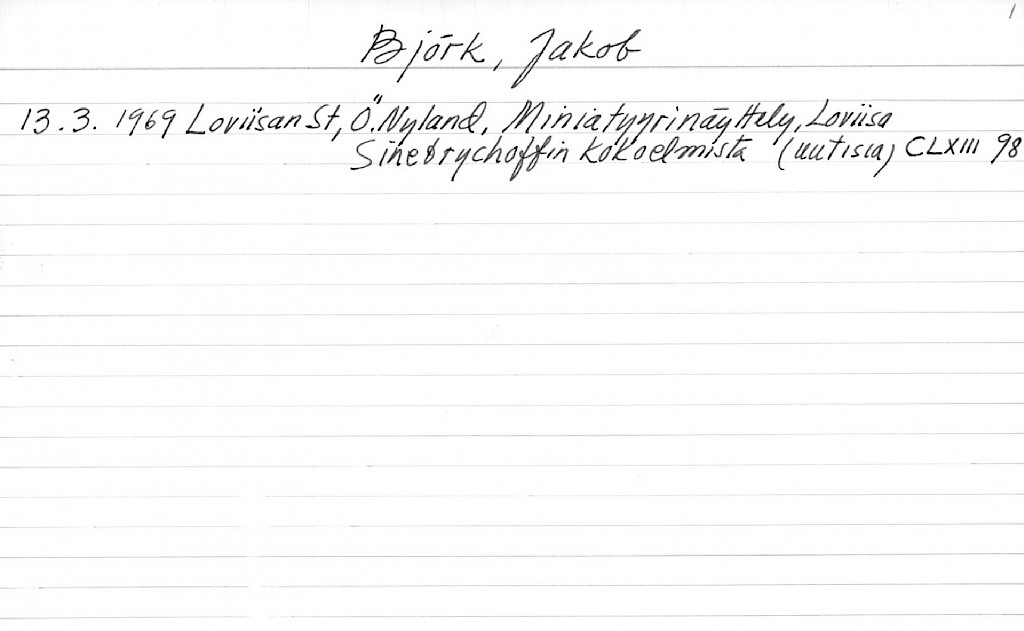 1
Björk, Jakob
13.3. 1969 Loviisan St, Ö. Nyland, Miniatyyrinäyttely, Loviisa
Sinebrychoffin kokoelmista (uutisia) CLXIII 98